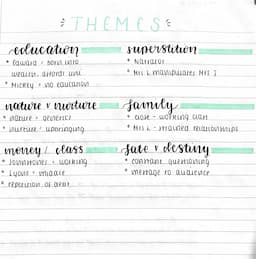 THEMES
education
* Edward = born into
wealth, afford uni
* Mickey = no education
superstition
* Narrator
* Mrs L manipulates Mrs J
nature v nurture
* nature = genetics
* nurture = upbringing
family
* close - working class
* Mrs L - strained relationships
money / class
* Johnstones = working
* Lyons = middle
* repetition of debt
fate v destiny
* constant questioning
* message to audience